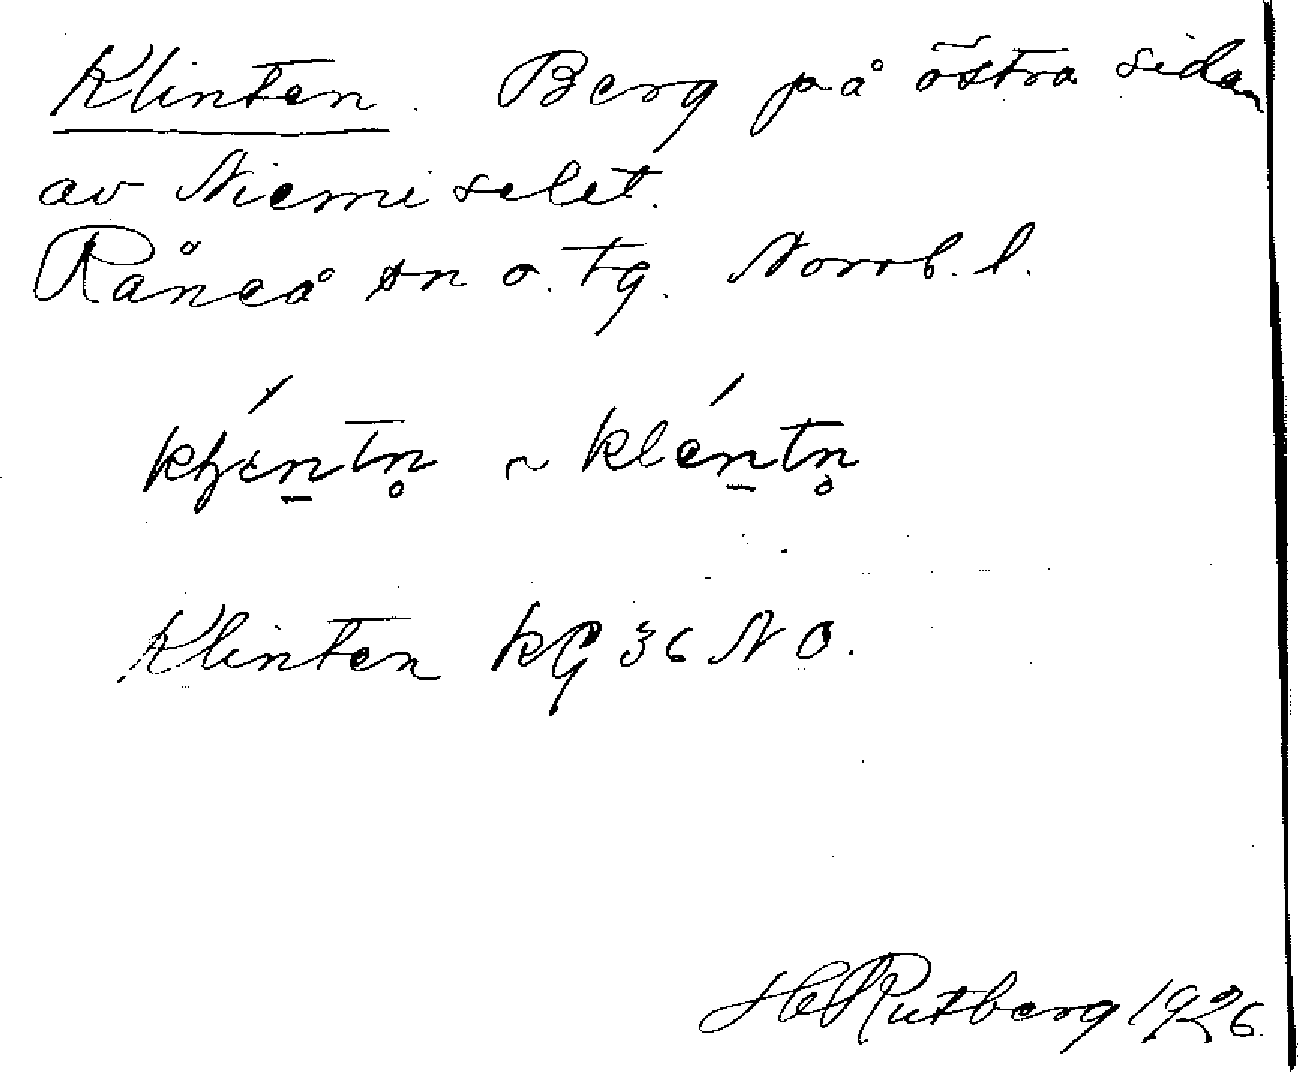 Klinten. Berg på östra sidan
av Niemiselet.
Råneå sn o. tg. Norrb. l.
kḷén̲tn̥ ~ klén̲tn̥
Klinten kG 36 NO.
H Rutberg 1926.